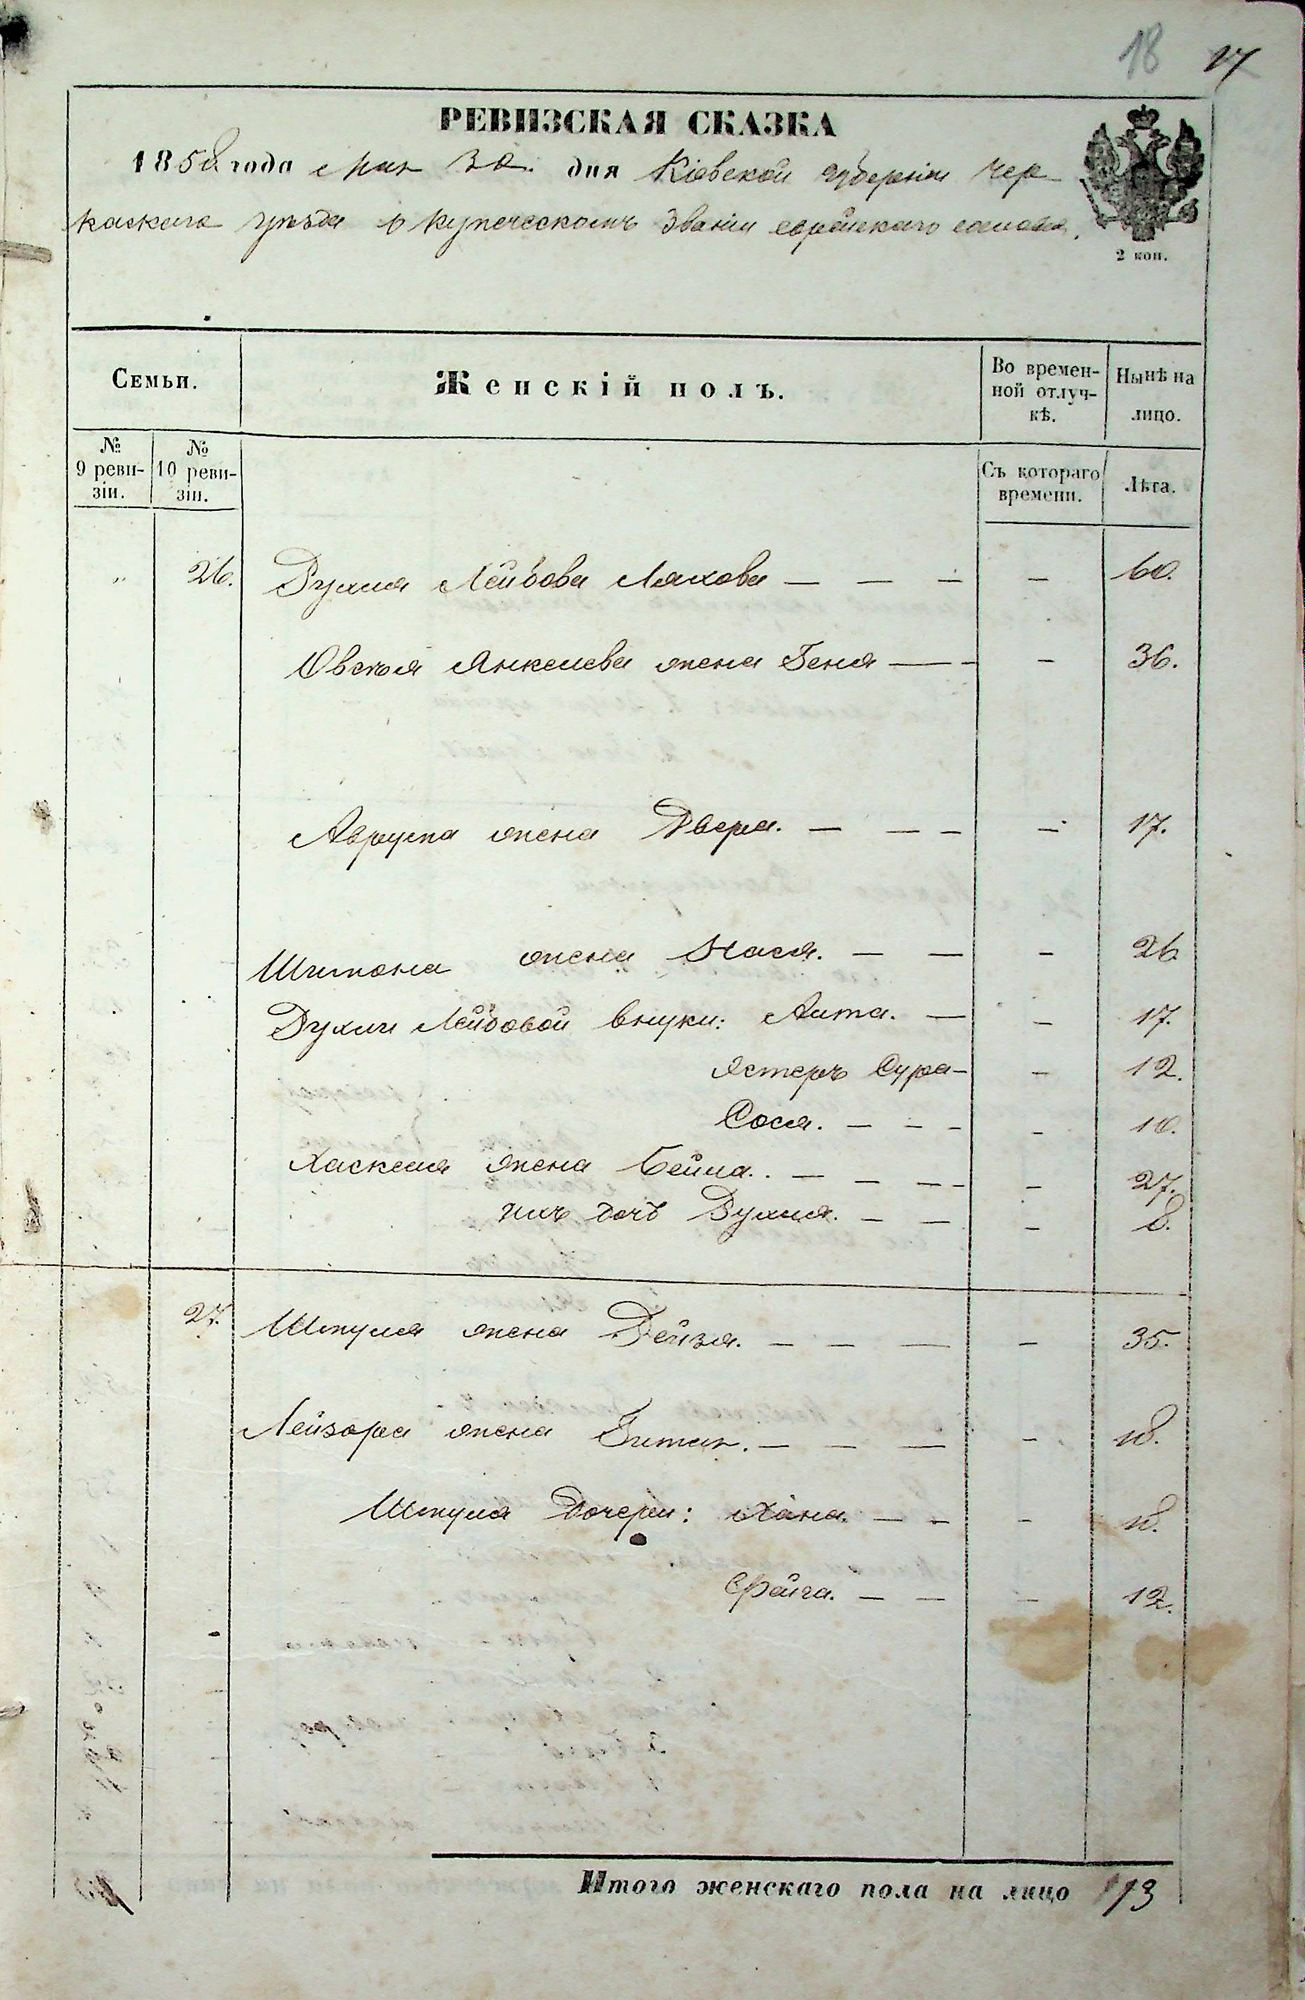 18 17
РЕВИЗСКАЯ СКАЗКА
1858 года Мая 30 дня Кіевской губерніи Чер
каскаго уѣзда о купеческомъ званіи еврейскаго
2 коп.
Семьи.
Женскій полъ.
Во времен-
ной отлуч-
кѣ.
Нынѣ на
лицо.
№
9 реви-
зіи.
№
10 реви-
зіи.
Съ котораго
времени.
Лѣта.
„ 26. Рухля Лейбова Ляхова — — — — 60.
Овсѣя Янкелева жена Беня — — — 36.
жена Двера. — — — — 17.
Шимона жена Хася. — — — 26
Рухли Лейбовой внуки: Аита. — — 17.
Эстеръ Сура — — 12.
Сося. — — — — 10.
Хаскеля жена Бейла. — — — — — 27.
ихъ дочь Рухля. — — — 8.
27. Шмуля жена Рейзя. — — — — 35.
Лейзора жена Гитля. — — — — 18.
Шмуля дочери: Хана. — — — 18.
Фейга. — — — 12.
Итого женскаго пола на лицо 13